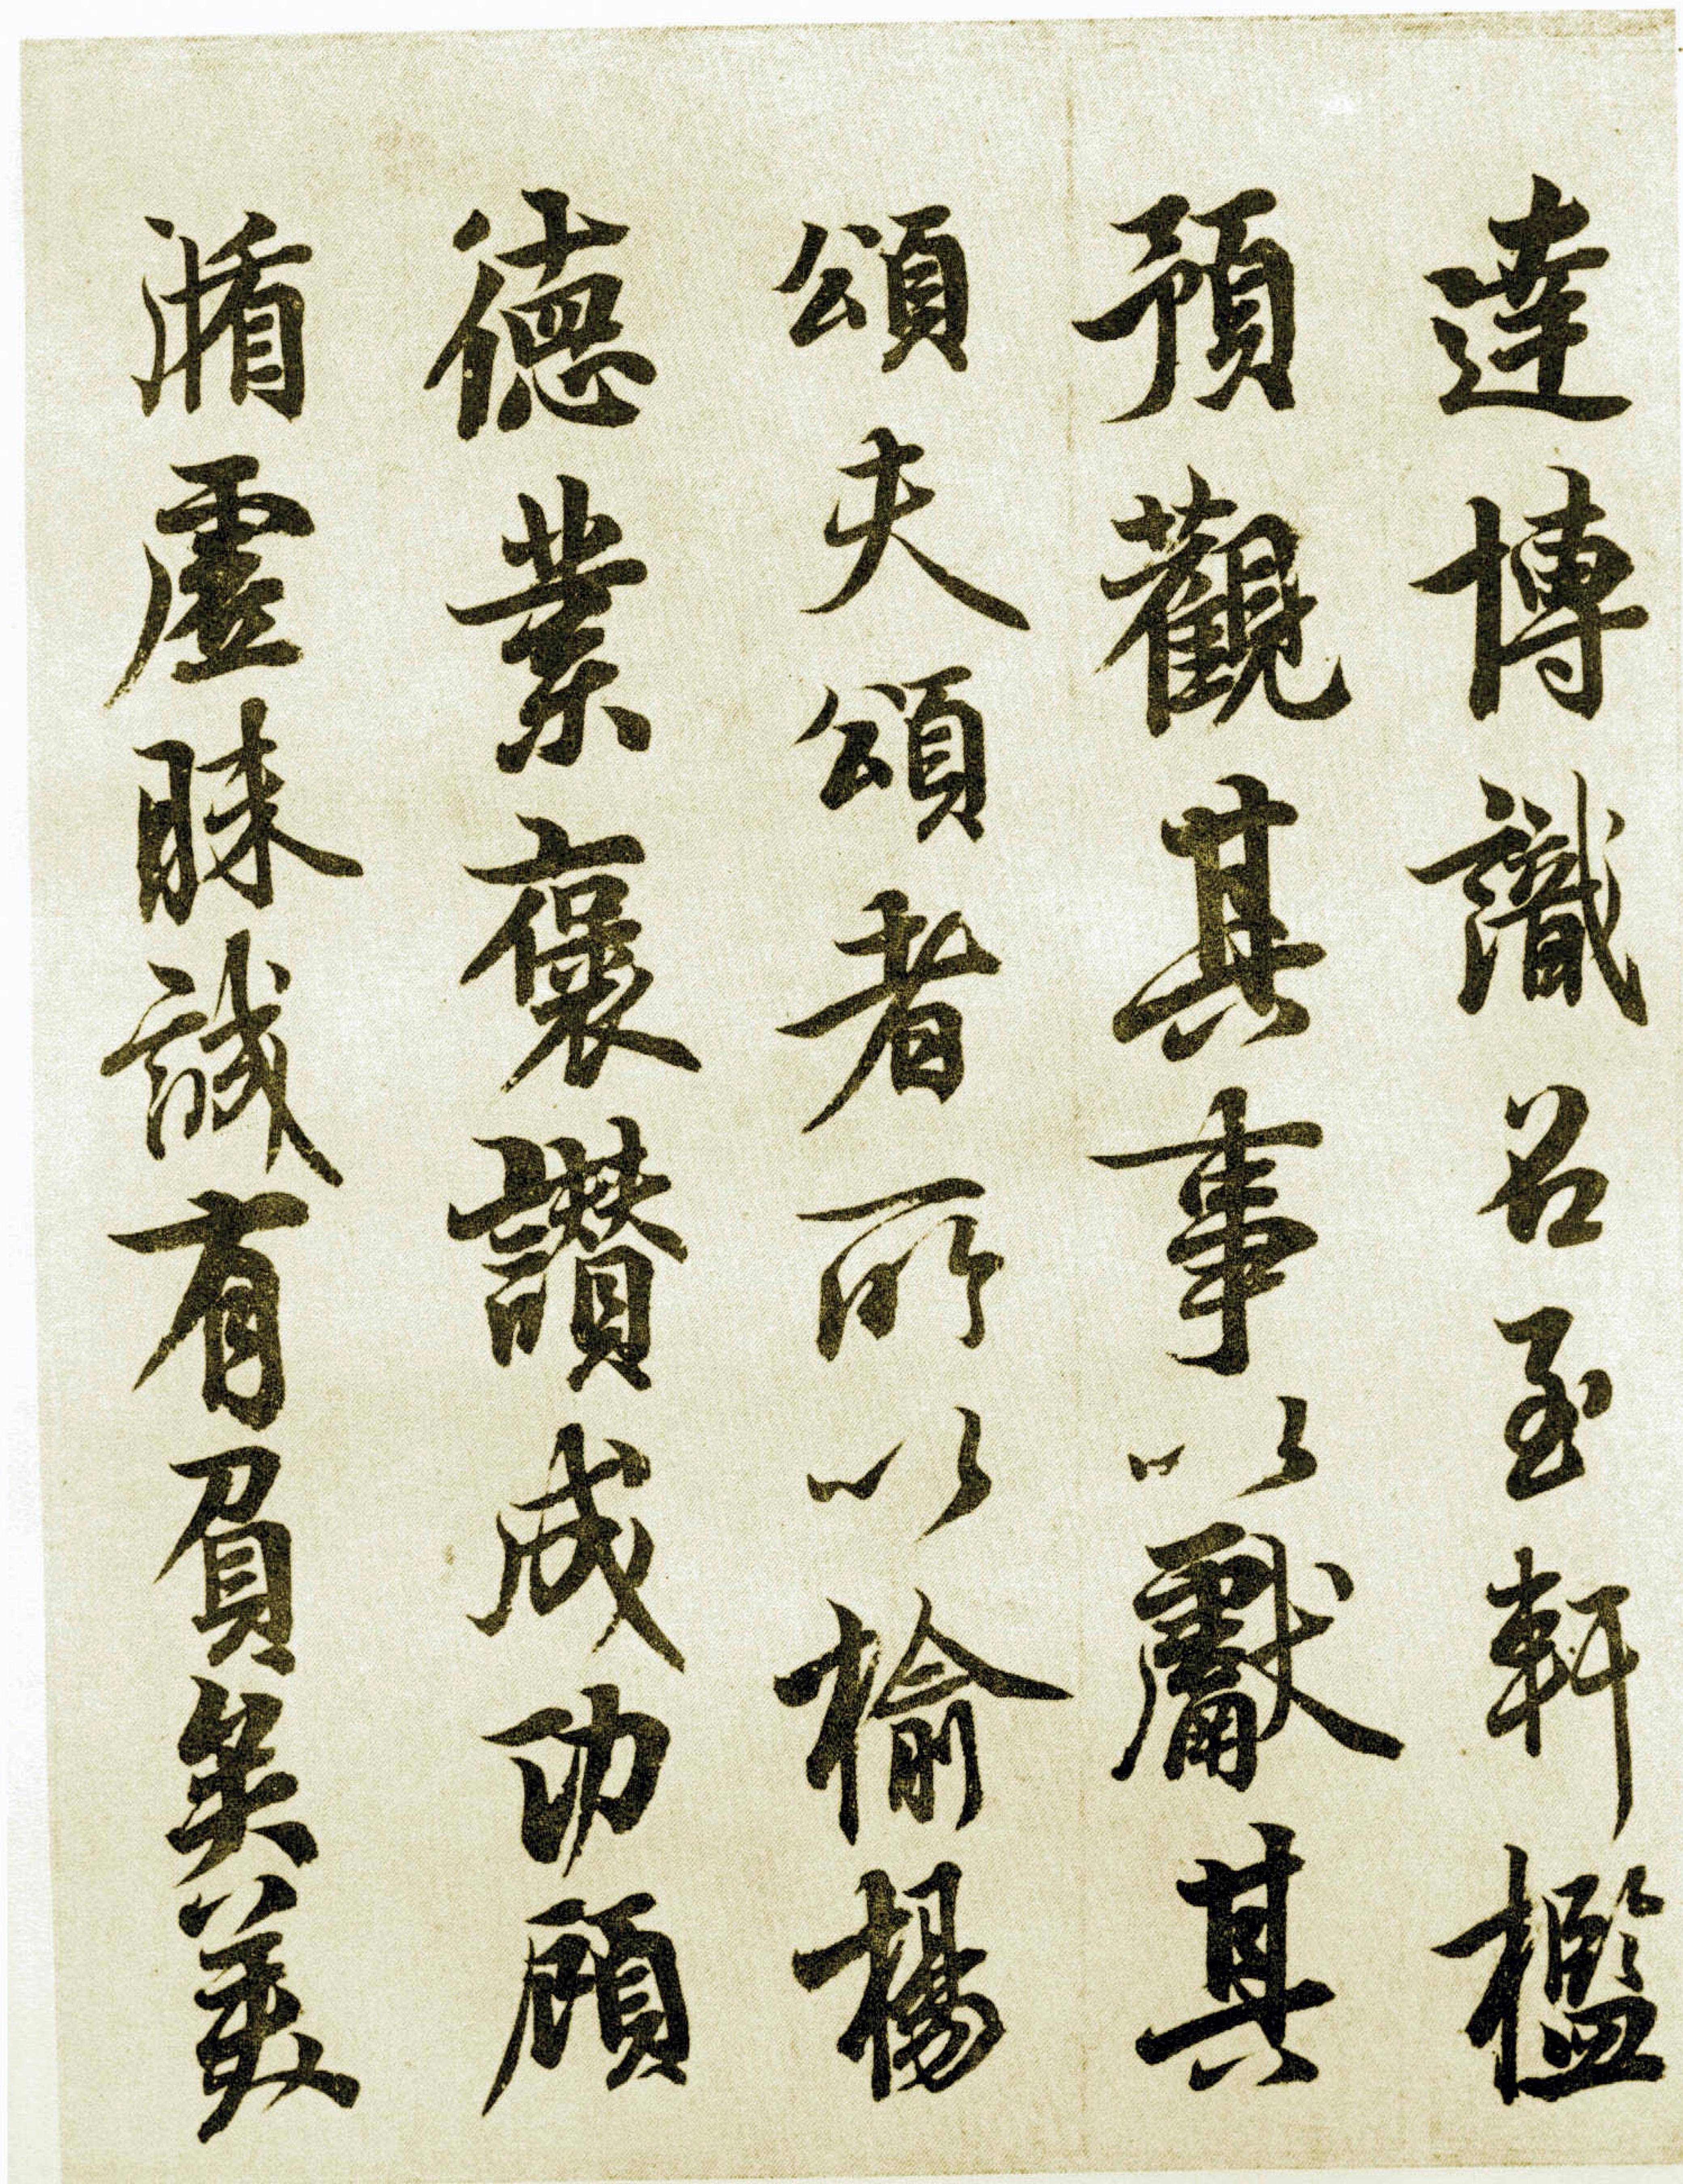 達博識召至軒檻
預觀其事以獻其
頌夫頌者所以揄揚
德業褒讚成功顧
循虛昧誠有負矣美